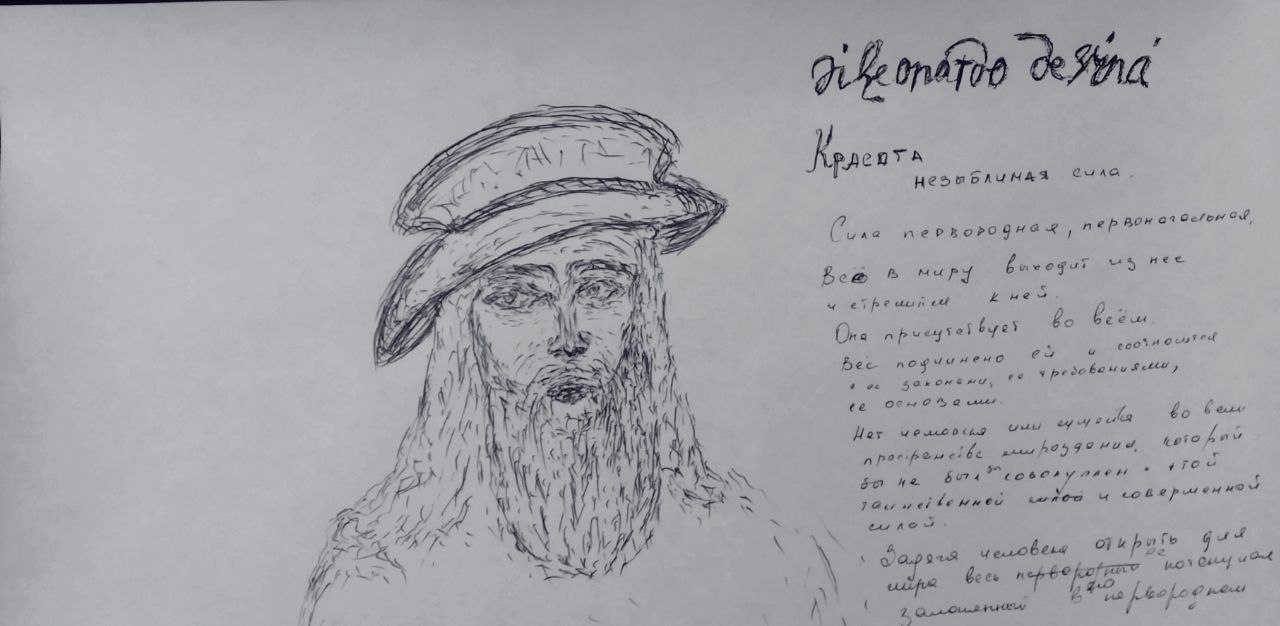 Красота
незыблимая сила.
Сила первородная, первоначальная,
Всё в миру выходит из нее
и стремится к ней.
Она присутствует во всём.
Всё подчинено ей и соотносится
с ее законами, ее требованиями,
ее основами.
Нет человека или существа во всем
пространстве мироздания, который
бы не был бы совокуплен с этой
таинственной и совершенной
силой.
Задача человека открыть для
мира весь ее потенциал
заложенный в его первородном